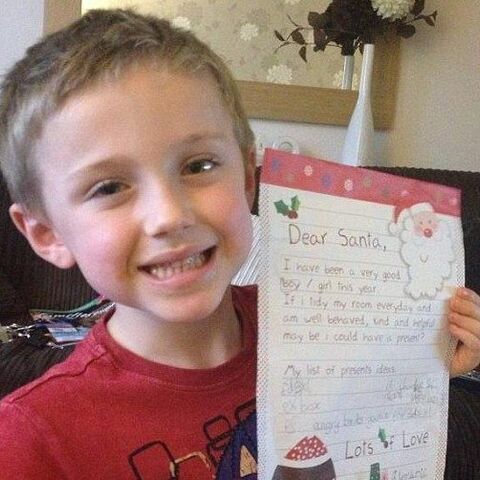 Dear Santa,
I have been a very good
Boy / girl this year.
If i tidy my room everyday and
am well behaved, kind and helpful
may be i could have a present?
My list of presents ideas
box
angry birds
Lots of Love